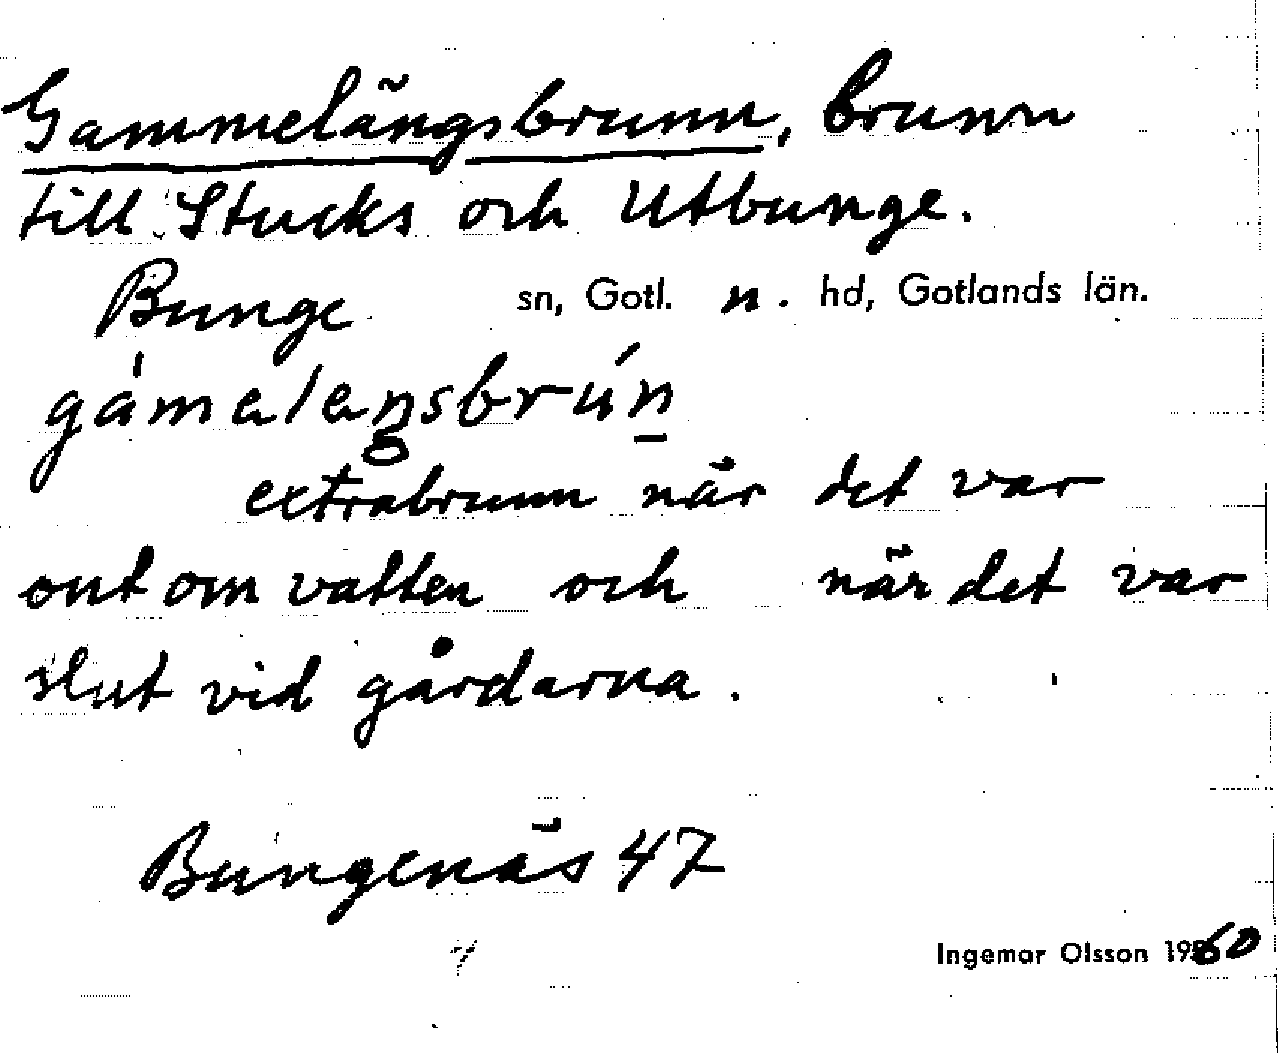 Gammelängsbrunn, brunn
till Stucks och Utbunge.
Bunge sn, Gotl. n. hd, Gotlands län.
gámalaŋsbrún̲
extrabrunn när det var
ont om vatten och när det var
slut vid gårdarna.
Bungenäs 47
Ingemar Olsson 1960